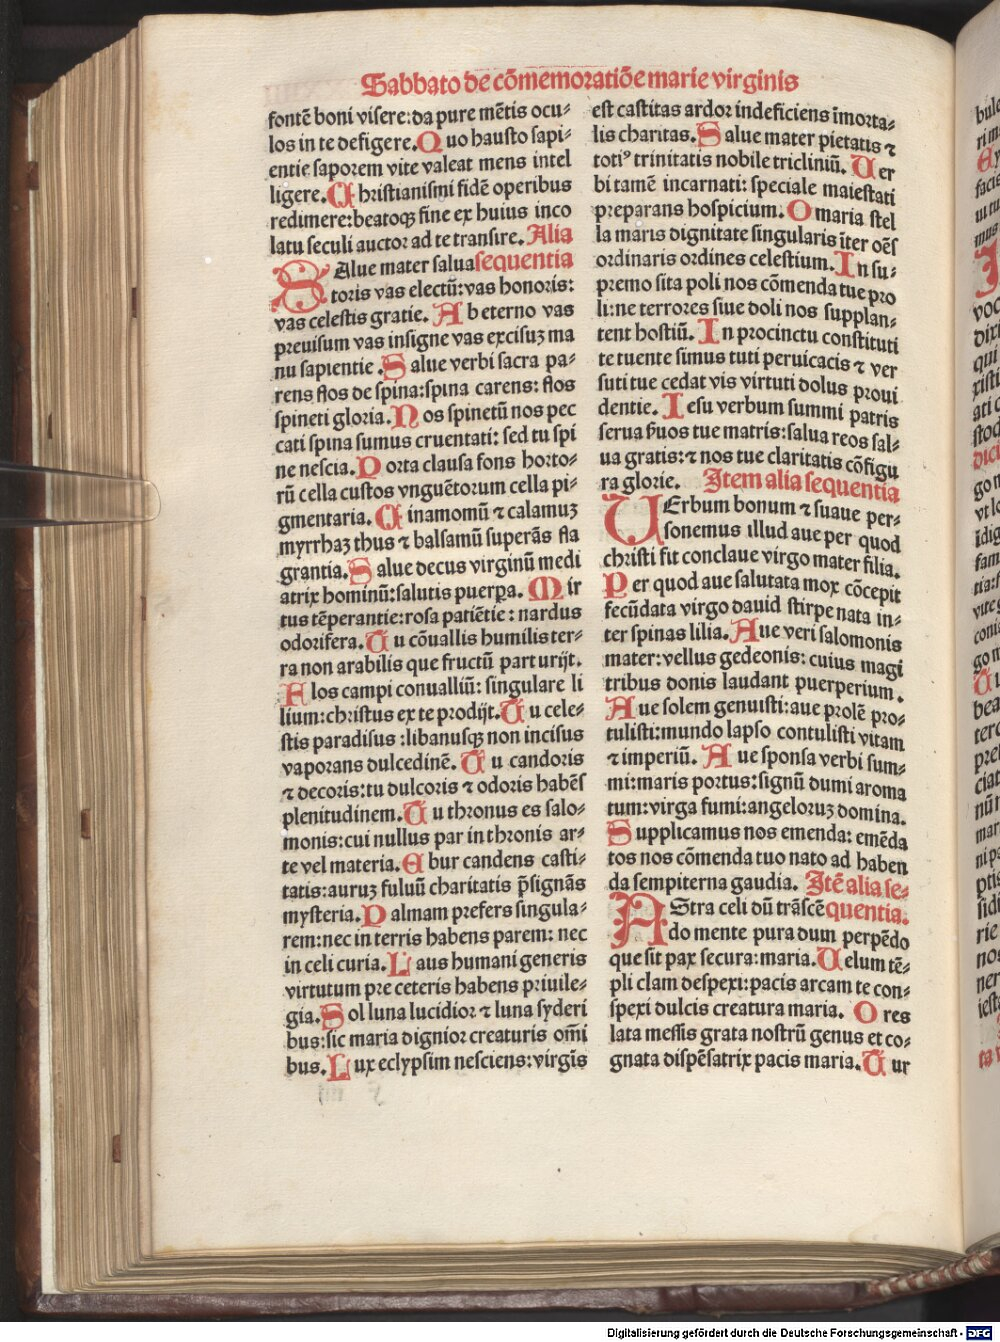 Sabbato de cōmemoratiōe marie virginis
fontē boni visere:da pure mētis ocu⸗
los in te defigere.Quo hausto sapi⸗
entie saporem vite valeat mens intel
ligere.Christianismi fidē operibus
redimere:beatoqꝫ fine ex huius inco
latu seculi auctor ad te transire.Alia
SAlue mater saluasequentia
toris vas electū:vas honoris:
vas celestis gratie. Ab eterno vas
preuisum vas insigne vas excisuꝫ ma
nu sapientie.Salue verbi sacra pa⸗
rens flos de spina:spina carens: flos
spineti gloria.Nos spinetū nos pec
cati spina sumus cruentati: sed tu spi
ne nescia.Porta clausa fons horto⸗
rū cella custos vnguētorum cella pi⸗
gmentaria.Cinamomū ⁊ calamuꝫ
myrrhaꝫ thus ⁊ balsamū superās fla
grantia.Salue decus virginū medi
atrix hominū:salutis puerꝑa. Mir
tus tēperantie:rosa patiētie: nardus
odorifera.Tu cōuallis humilis ter⸗
ra non arabilis que fructū parturijt.
Flos campi conualliū: singulare li
lium:christus ex te prodijt.Tu cele⸗
stis paradisus :libanusqꝫ non incisus
vaporans dulcedinē. Tu candoris
⁊ decoris:tu dulcoris ⁊ odoris habēs
plenitudinem.Tu thronus es salo⸗
monis:cui nullus par in thronis ar⸗
te vel materia.Ebur candens casti⸗
tatis:auruꝫ fuluū charitatis p̄signās
mysteria.Palmam prefers singula⸗
rem:nec in terris habens parem: nec
in celi curia.Laus humani generis
virtutum pre ceteris habens priuile⸗
gia.Sol luna lucidior ⁊ luna syderi
bus:sic maria dignior creaturis om̄i
bus.Lux eclypsim nesciens:virgīs
est castitas ardor indeficiens īmorta⸗
lis charitas.Salue mater pietatis ⁊
totiꝰ trinitatis nobile tricliniū. Uer
bi tamē incarnati: speciale maiestati
preparans hospicium.O maria stel
la maris dignitate singularis iter oēs
ordinaris ordines celestium.In su⸗
premo sita poli nos cōmenda tue pro
li:ne terrores siue doli nos supplan⸗
tent hostiū. In procinctu constituti
te tuente simus tuti peruicacis ⁊ ver
suti tue cedat vis virtuti dolus proui
dentie.Iesu verbum summi patris
serua ẜuos tue matris:salua reos sal⸗
ua gratis:⁊ nos tue claritatis cōfigu
ra glorie. Item alia sequentia
UErbum bonum ⁊ suaue per⸗
sonemus illud aue per quod
christi fit conclaue virgo mater filia.
Per quod aue salutata mox cōcepit
fecūdata virgo dauid stirpe nata in⸗
ter spinas lilia.Aue veri salomonis
mater:vellus gedeonis: cuius magi
tribus donis laudant puerperium.
Aue solem genuisti:aue prolē pro⸗
tulisti:mundo lapso contulisti vitam
⁊ imperiū. Aue sponsa verbi sum⸗
mi:maris portus:signū dumi aroma
tum:virga fumi:angeloruꝫ domina.
Supplicamus nos emenda: emēda
tos nos cōmenda tuo nato ad haben
da sempiterna gaudia. Itē alia se⸗
AStra celi dū trāscēquentia.
do mente pura dum perpēdo
que sit pax secura:maria.Uelum tē⸗
pli clam despexi:pacis arcam te con⸗
spexi dulcis creatura maria. O res
lata messis grata nostrū genus et co⸗
gnata dispēsatrix pacis maria.Tur
Digitalisierung gefördert durch die Deutsche Forschungsgemeinschaft - DFG